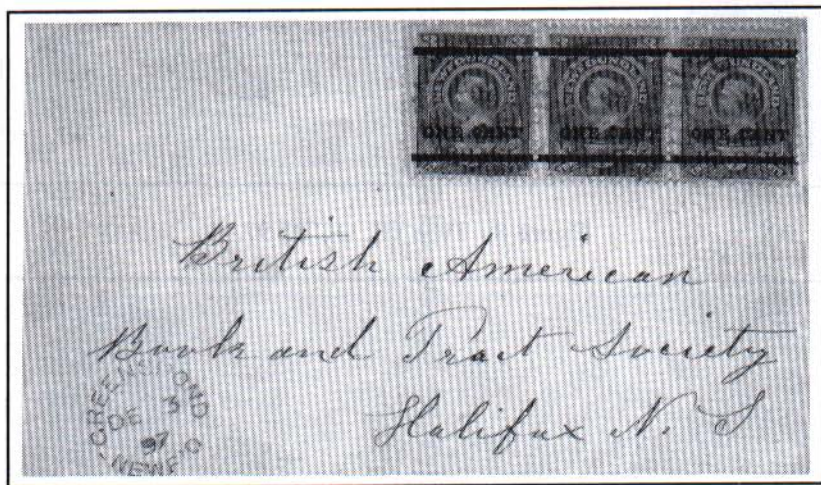 NEWFOUNDLAND NEWFOUNDLAND NEWFOUNDLAND
ONE CENT ONE CENT ONE CENT
British American
Book and Tract Society
Halifax N. S
GREENSPOND
DE 3
97
NEWF'D